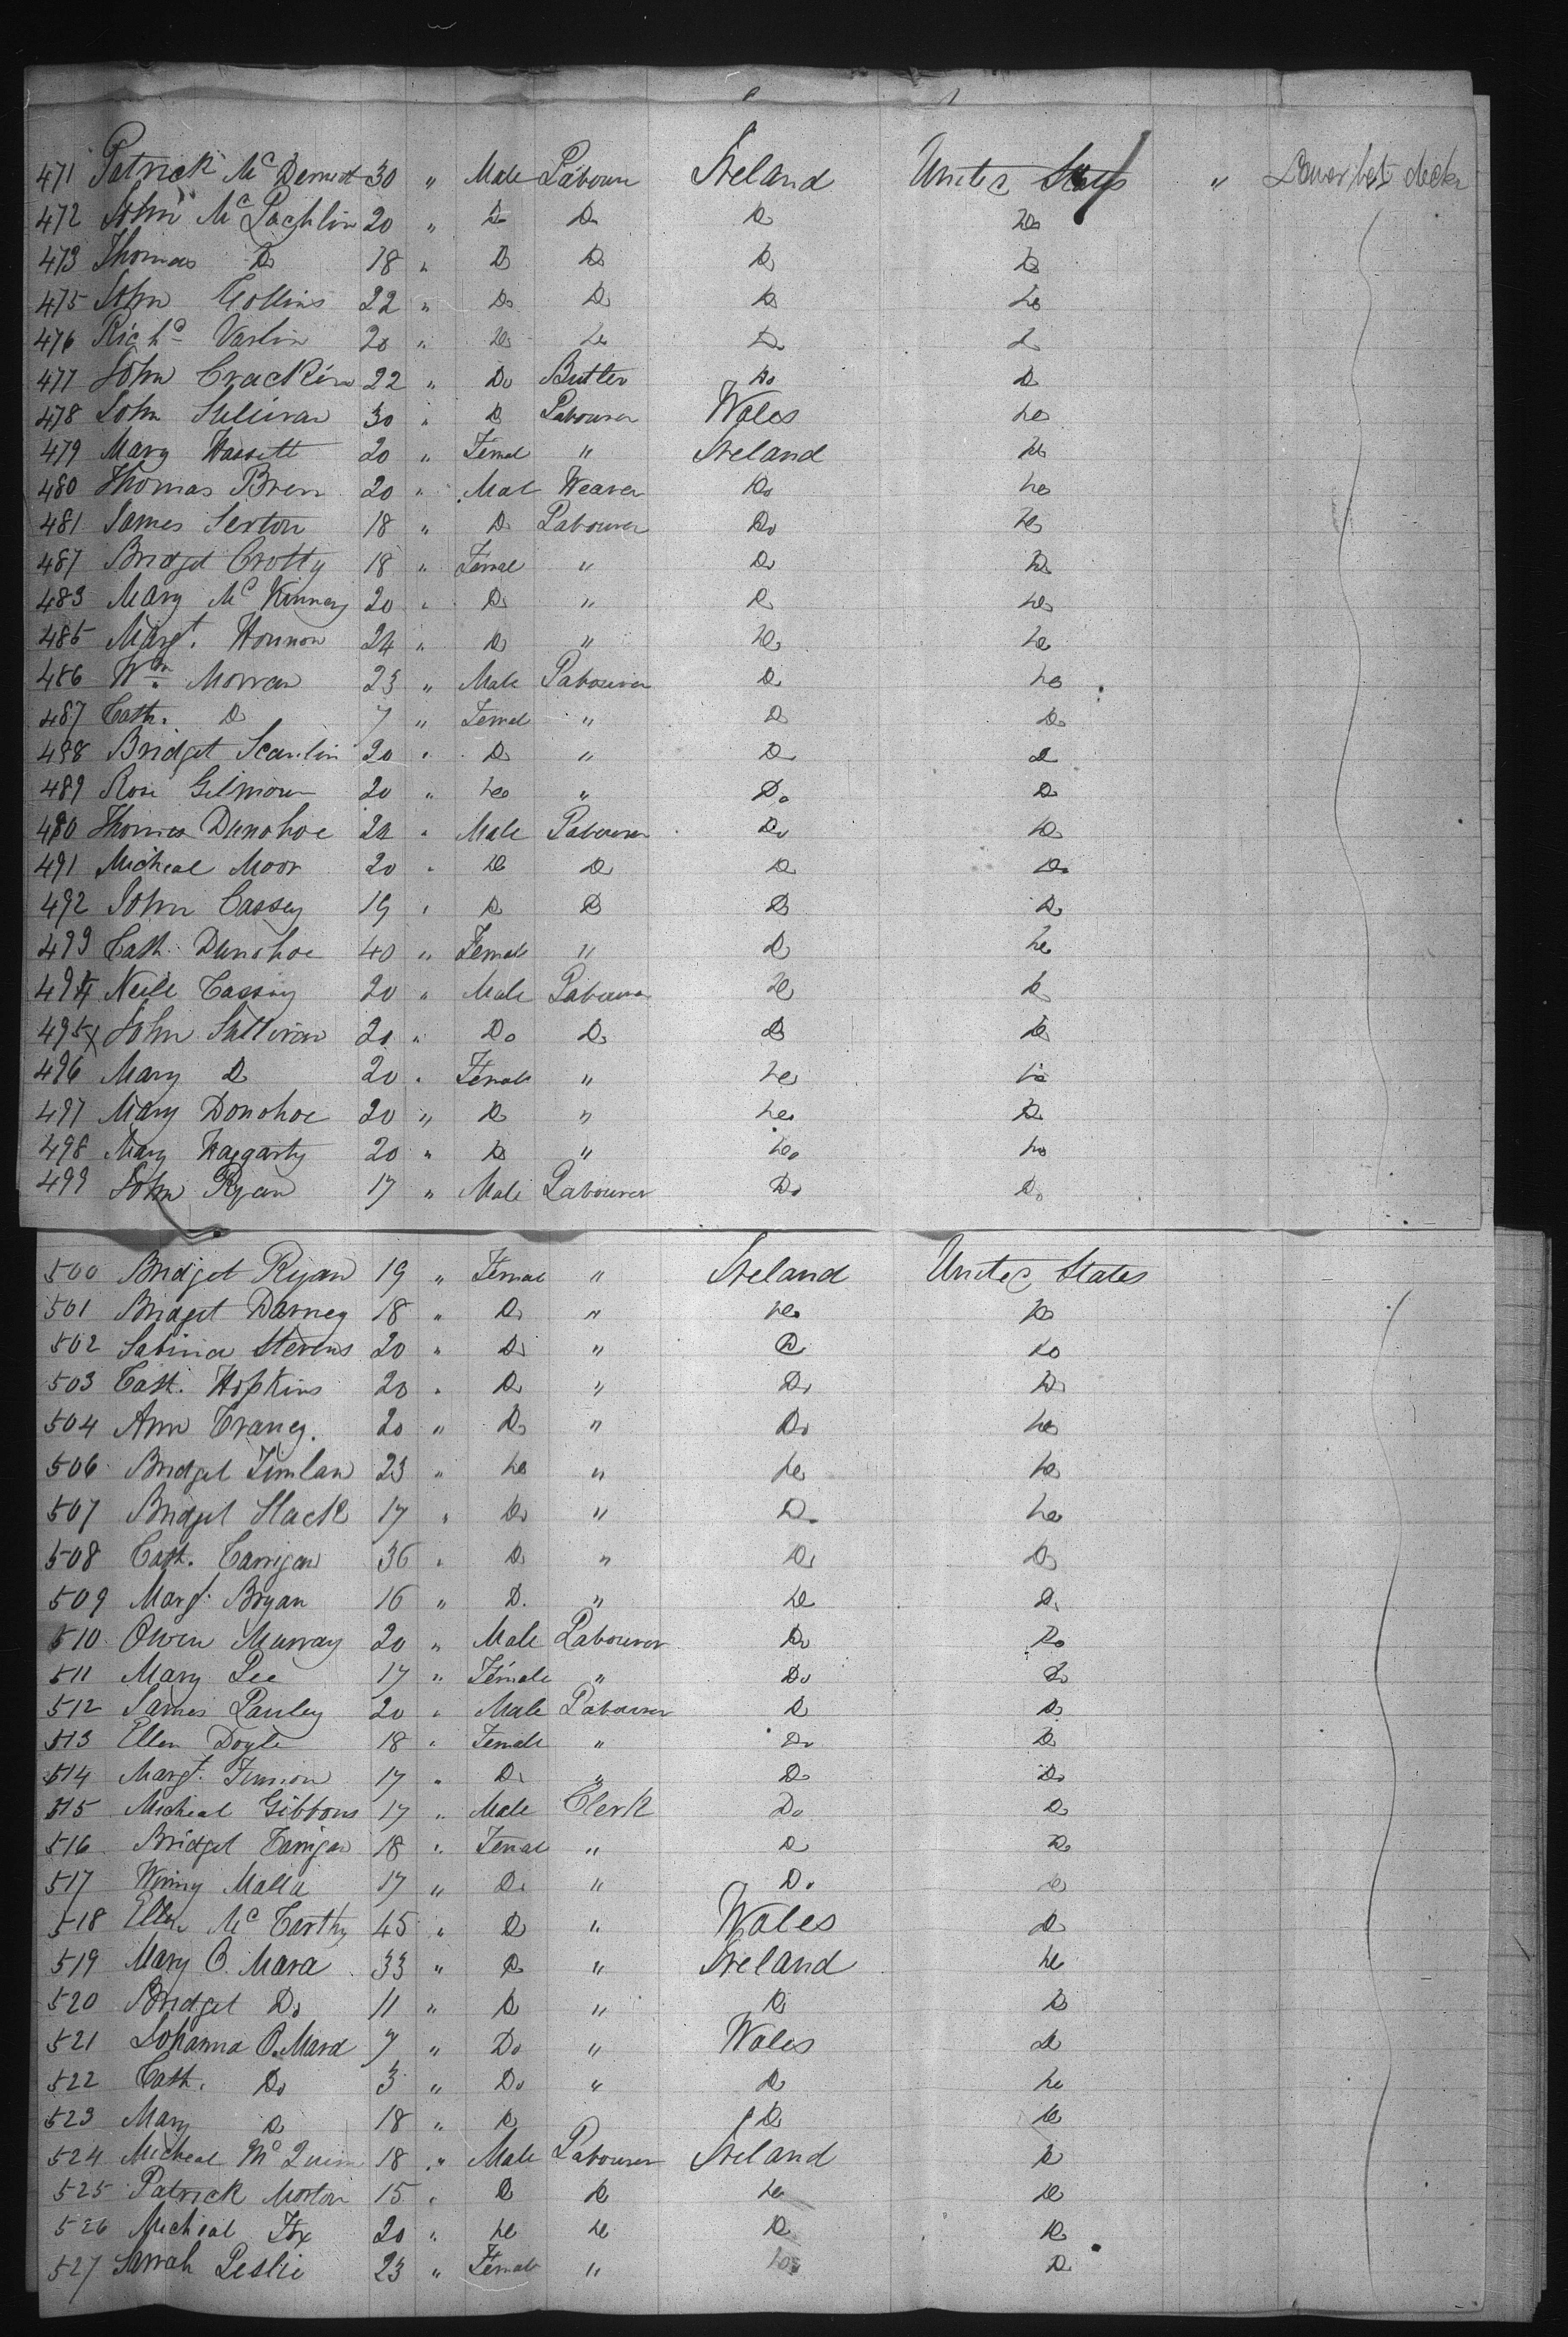 471 Patrick McDermott 30 " Male Labourer Ireland United States " Lower bet decks
472 John McLachlin 20 " Do Do Do Do
473 Thomas Do 18 " Do Do Do Do
475 John Collins 22 " Do Do Do Do
476 Richd Varlin 20 " Do Do Do Do
477 John Crackin 22 " Do Butler Do Do
478 John Sullivan 30 " Do Labourer Wales Do
479 Mary Hassett 20 " Femal " Ireland Do
480 Thomas Bren 20 " Mal Weaver Do Do
481 James Sexton 18 " Do Labourer Do Do
487 Bridget Crotty 18 " Femal " Do Do
483 Mary McKinney 20 " Do " Do Do
485 Margt. Honnon 24 " Do " Do Do
486 Wm. Morran 23 " Male Labourer Do Do
487 Cath. Do 7 " Femal " Do Do
488 Bridget Scanlin 20 " Do " Do Do
489 Rose Gilmour 20 " Do " Do Do
480 Thomas Dunohoe 22 " Male Labourer Do Do
491 Micheal Moor 20 " Do Do Do Do
492 John Cassey 19 " Do Do Do Do
493 Cath. Dunohoe 40 " Female " Do Do
494 Neill Cassey 20 " Male Labourer Do Do
495 x John Sullivan 20 " Do Do Do Do
496 Mary Do 20 " Female " Do Do
497 Mary Donohoe 20 " Do " Do Do
498 Mary Haggarty 20 " Do " Do Do
499 John Ryan 17 " Male Labourer Do Do
500 Bridget Ryan 19 " Female " Ireland United States
501 Bridget Darney 18 " Do " Do Do
502 Sabina Stevens 20 " Do " Do Do
503 Cath. Hopkins 20 " Do " Do Do
504 Ann Craney. 20 " Do " Do Do
506 Bridget Timlan 23 " Do " Do Do
507 Bridget Slack 17 " Do " Do Do
508 Cath. Carrigan 36 " Do " Do Do
509 Margt. Bryan 16 " Do " Do Do
510 Owen Murray 20 " Male Labourer Do Do
511 Mary Lee 17 " Female " Do Do
512 James Lauley 20 " Male Labourer Do Do
513 Ellen Doyle 18 " Female " Do Do
514 Margt. Finnion 17 " Do " Do Do
515 Micheal Gibbons 17 " Male Clerk Do Do
516 Bridget Carrigan 18 " Female " Do Do
517 Winny Malla 17 " Do " Do Do
518 Ellen McCarthy 45 " Do " Wales Do
519 Mary O. Mara 33 " Do " Ireland Do
520 Bridget Do 11 " Do " Do Do
521 Johanna O.Mara 7 " Do " Wales Do
522 Cath. Do 3 " Do " Do Do
523 Mary Do 18 " Do Do Do
524 Micheal McQuinn 18 " Male Labourer Ireland Do
525 Patrick Morton 15 " Do Do Do Do
526 Micheal Fox 20 " Do Do Do Do
527 Sarrah Leslie 23 " Female " Do Do